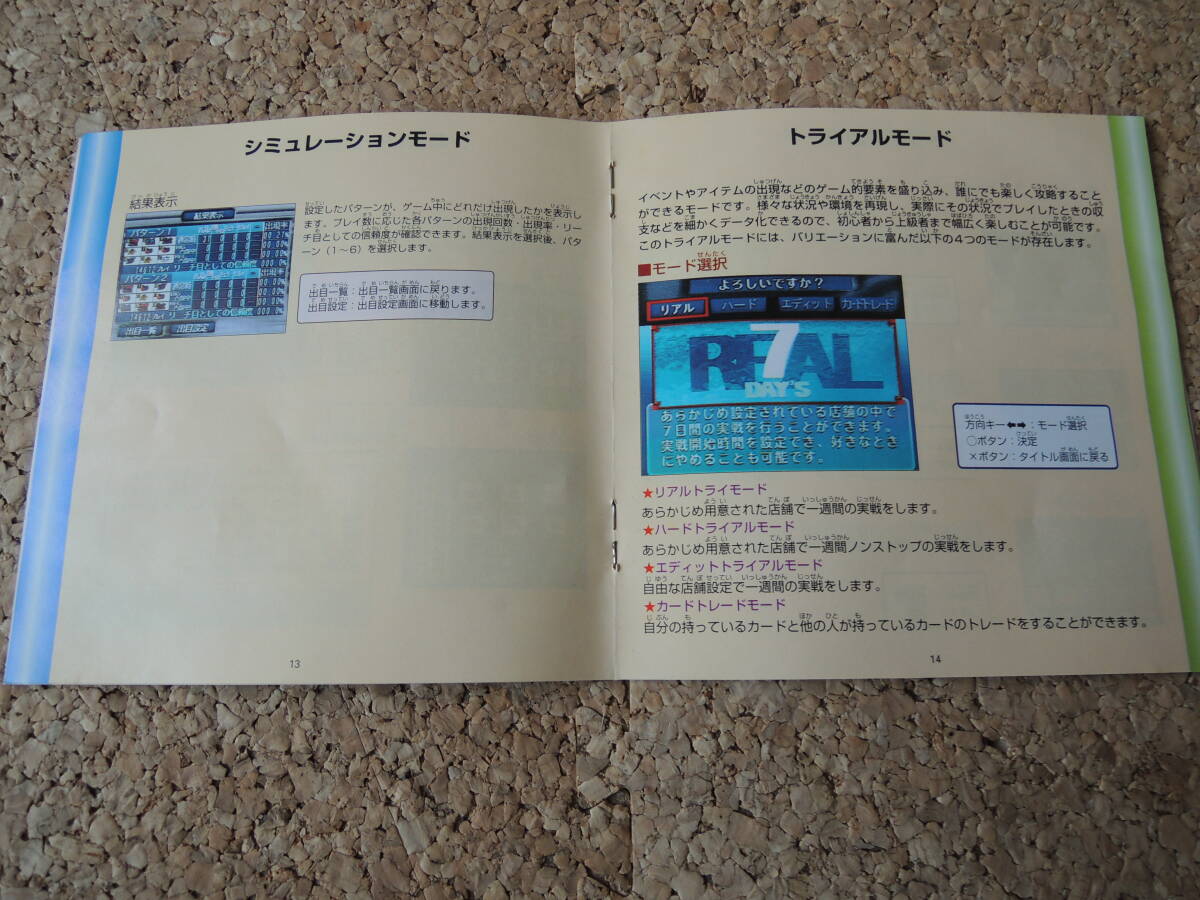 シミュレーションモード
結果表示
設定したパターンが、ゲーム中にどれだけ出現したかを表示し
ます。プレイ数に応じた各パターンの出現回数・出現率・リー
チ目としての信頼度が確認できます。結果表示を選択後、パタ
ーン(1～6)を選択します。
結果表示
パターン1
出現率
リーチ目としての信頼度
パターン2
出現率
リーチ目としての信頼度
出目一覧
出目設定
出目一覧：出目一覧画面に戻ります。
出目設定：出目設定画面に移動します。
13
トライアルモード
イベントやアイテムの出現などのゲーム的要素を盛り込み、誰にでも楽しく攻略すること
ができるモードです。様々な状況や環境を再現し、実際にその状況でプレイしたときの収
支などを細かくデータ化できるので、初心者から上級者まで幅広く楽しむことが可能です。
このトライアルモードには、バリエーションに富んだ以下の4つのモードが存在します。
■モード選択
よろしいですか？
リアル ハード エディット カードトレード
REAL
7
DAY'S
あらかじめ設定されている店舗の中で
7日間の実戦を行うことができます。
実戦開始時間を設定でき、好きなとき
にやめることも可能です。
方向キー⬅➡：モード選択
○ボタン：決定
×ボタン：タイトル画面に戻る
★リアルトライモード
あらかじめ用意された店舗で一週間の実戦をします。
★ハードトライアルモード
あらかじめ用意された店舗で一週間ノンストップの実戦をします。
★エディットトライアルモード
自由な店舗設定で一週間の実戦をします。
★カードトレードモード
自分の持っているカードと他の人が持っているカードのトレードをすることができます。
14